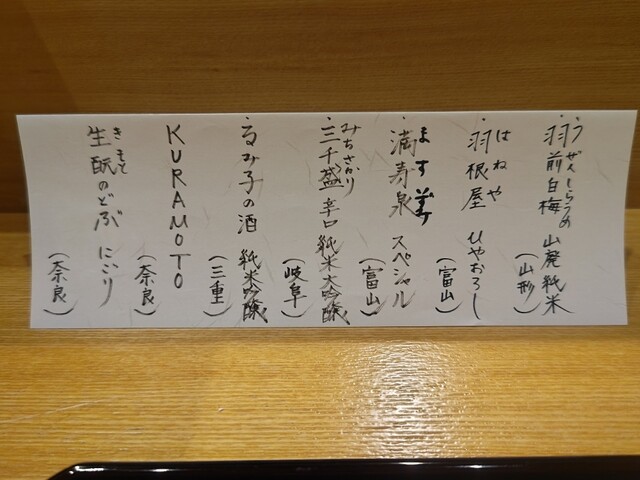 ・羽前白梅 山廃純米
うぜんしらうめ
(山形)
・羽根屋 ひやおろし
はねや
(富山)
・満寿泉 スペシャル
ます
(富山)
・三千盛 辛口 純米大吟醸
みちさかり
(岐阜)
・るみ子の酒 純米吟醸
(三重)
KURAMOTO
(奈良)
生酛のどぶ にごり
きもと
(奈良)